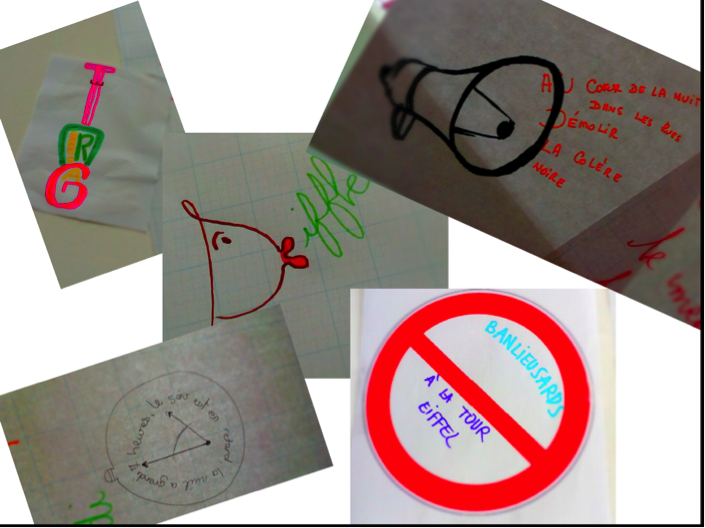 TIRG
AU CŒUR DE LA NUIT
DANS LES RUES
DÉMOLIR
LA COLÈRE
NOIRE
le
iffle
heures, le soir est en retard la nuit a grandi
BANLIEUSARDS
À LA TOUR
EIFFEL